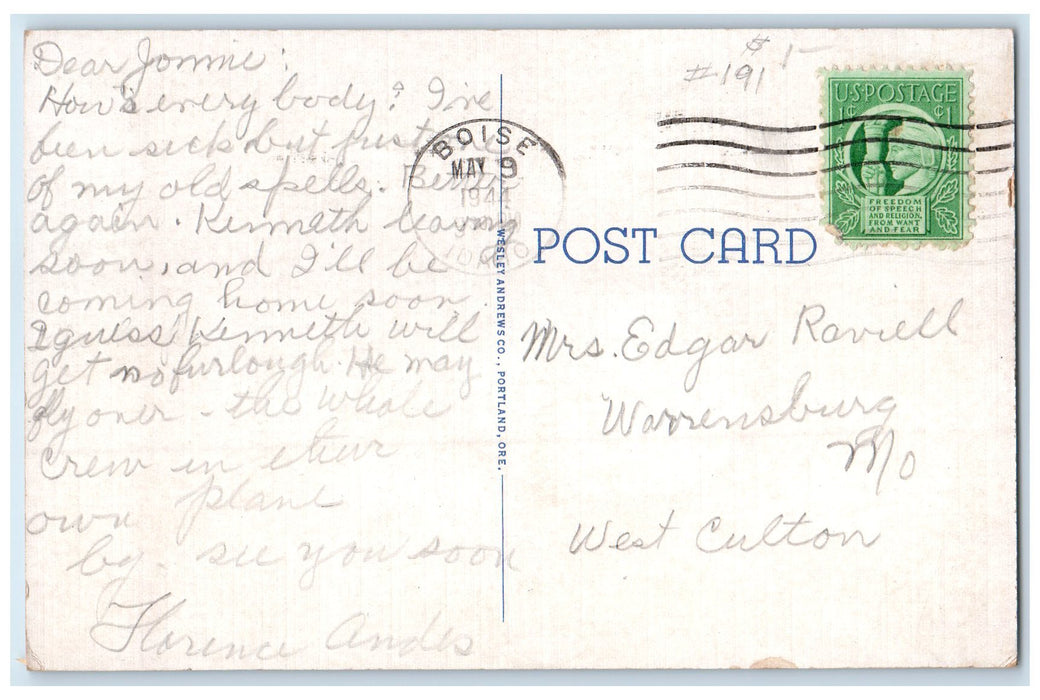 Dear Jommie:
How's every body? I've
been sick but just one
of my old spells. Better
again. Kenneth leaving
soon, and I'll be
coming home soon.
I guess Kenneth will
get no furlough. He may
fly over - the whole
crew in their
own plane
by. see you soon
Florence Andes
BOISE
MAY 9
1944
IDAHO
WESLEY ANDREWS CO., PORTLAND, ORE.
POST CARD
#191
$1-
U.S. POSTAGE
1¢ ¢1
FREEDOM
OF SPEECH
AND RELIGION,
FROM WANT
AND FEAR
Mrs. Edgar Raviell
Warrensburg
Mo
West Culton